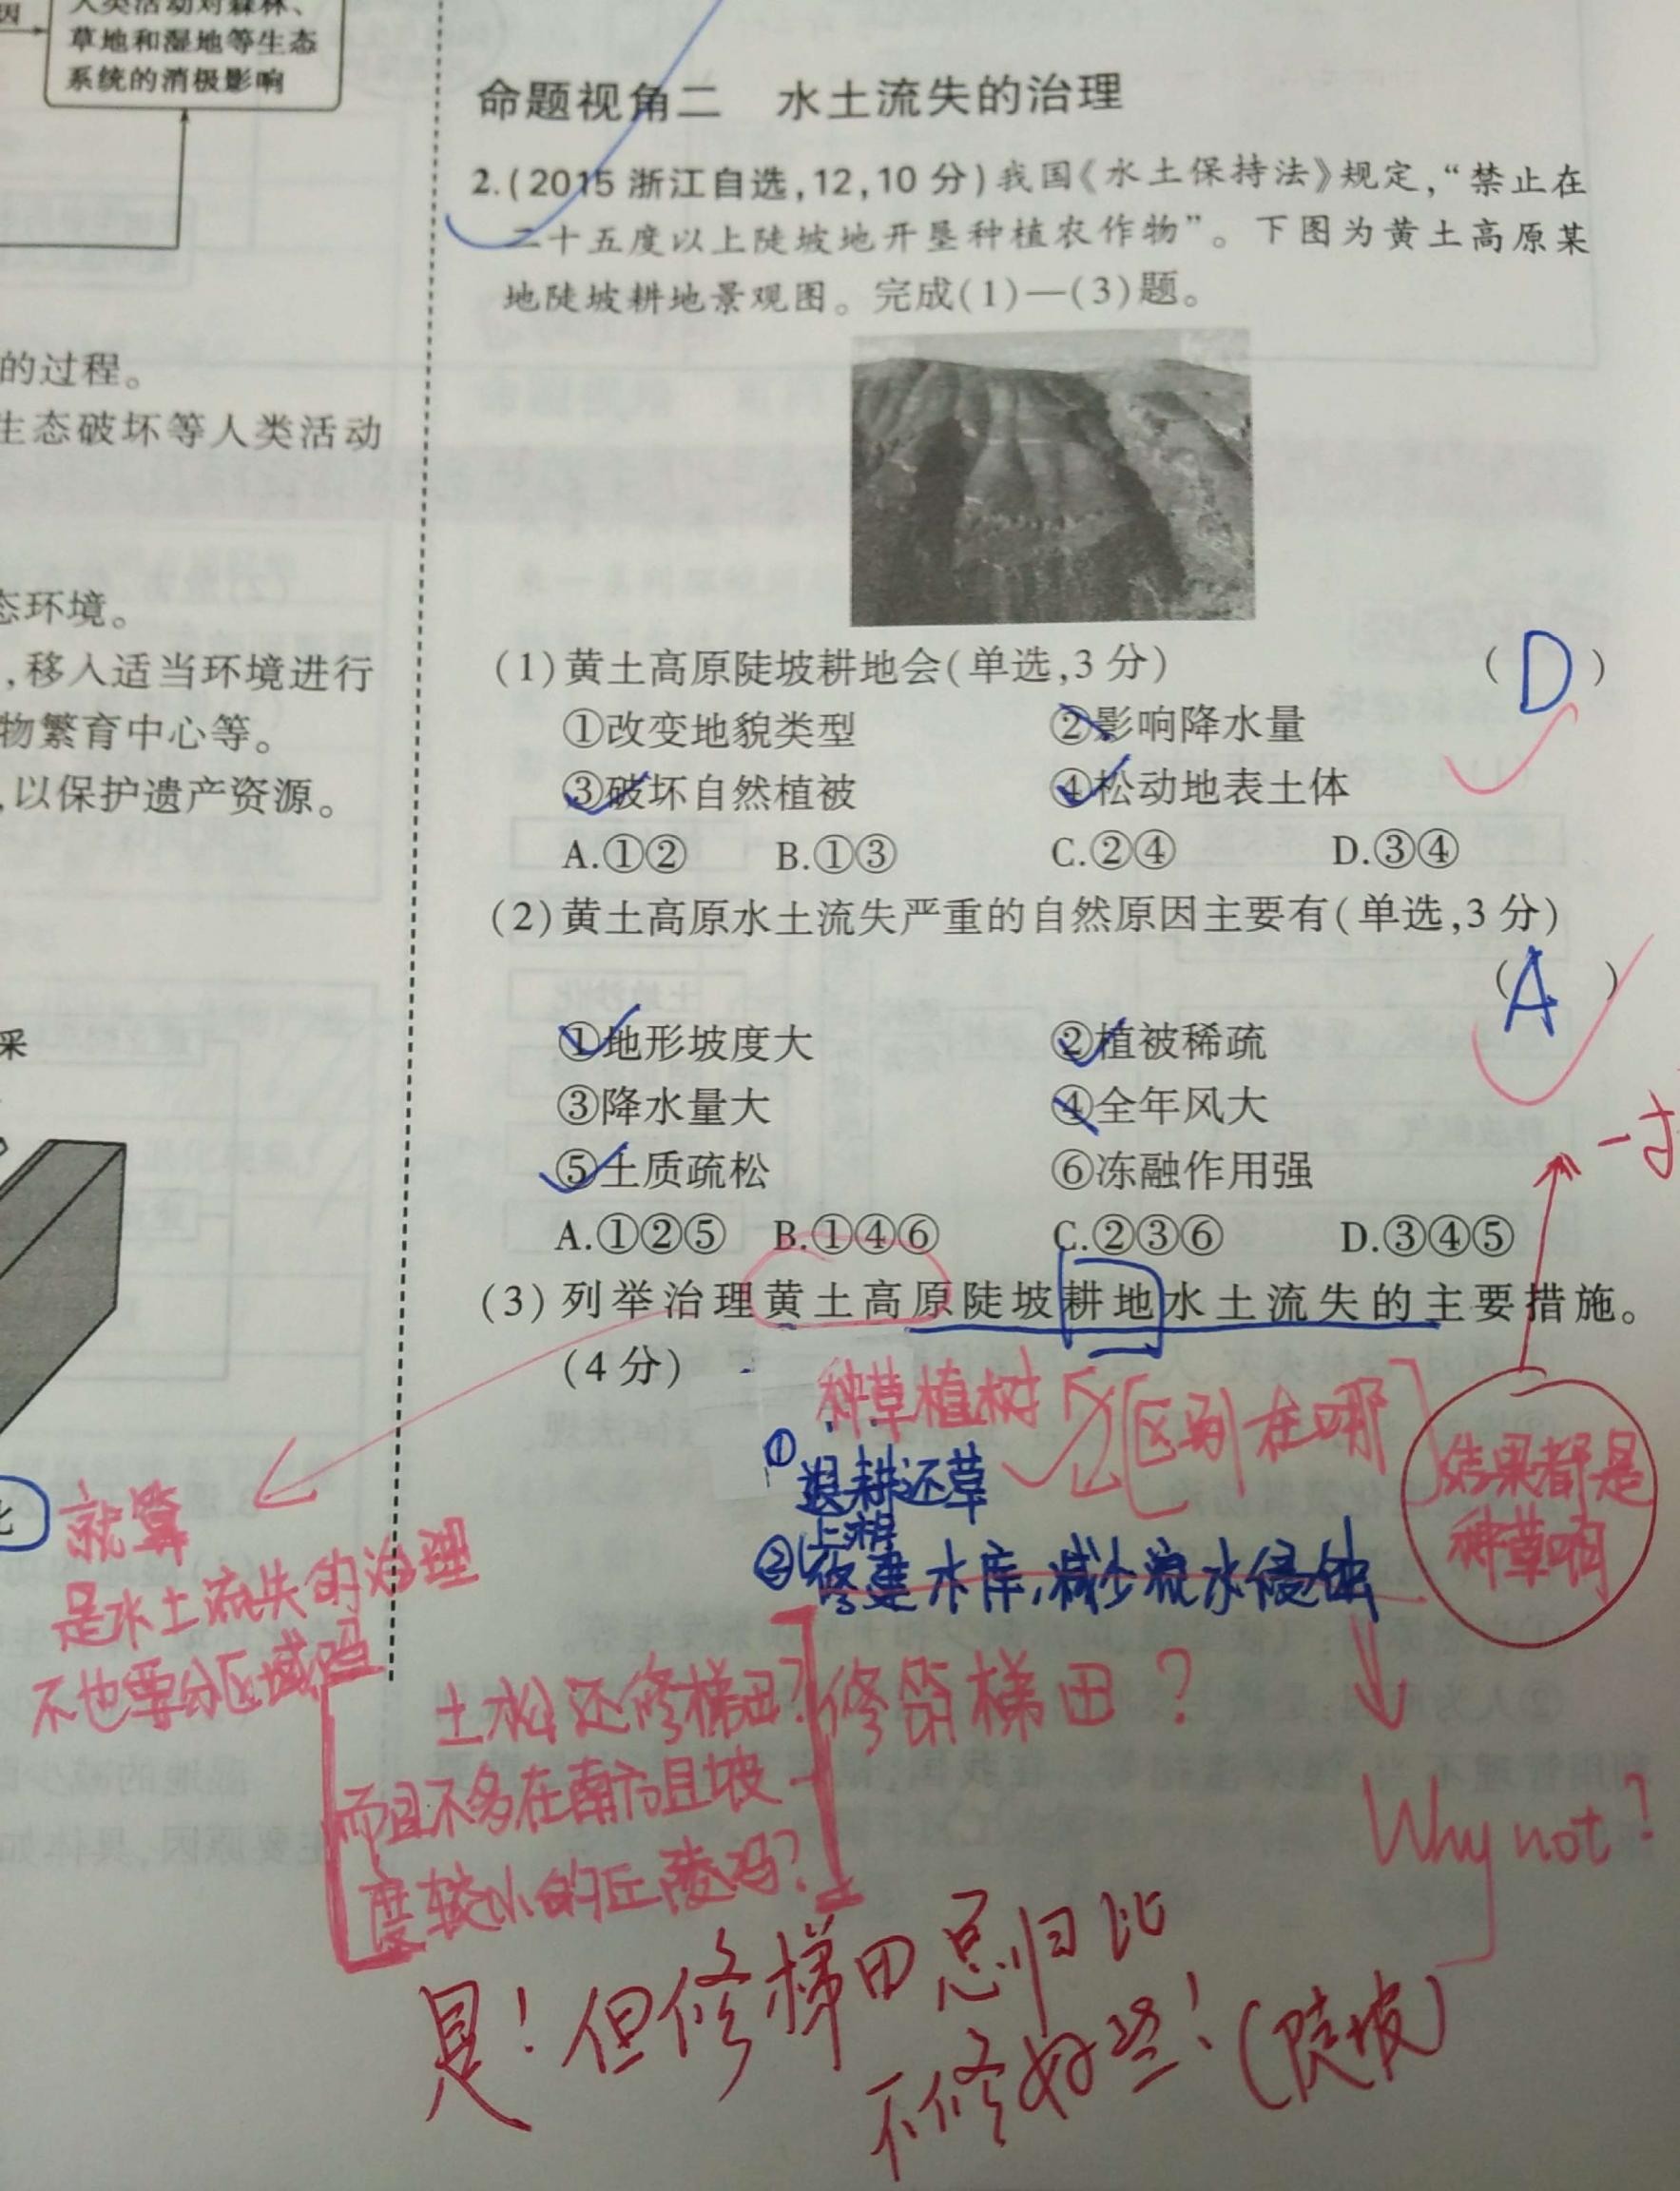 人类活动对森林、
草地和湿地等生态
系统的消极影响
的过程。
生态破坏等人类活动
态环境。
,移入适当环境进行
物繁育中心等。
,以保护遗产资源。
采
命题视角二 水土流失的治理
2.(2015 浙江自选,12,10 分)我国《水土保持法》规定,“禁止在
二十五度以上陡坡地开垦种植农作物”。下图为黄土高原某
地陡坡耕地景观图。完成(1)—(3)题。
(1)黄土高原陡坡耕地会(单选,3 分) ( D )
①改变地貌类型 ②影响降水量
③破坏自然植被 ④松动地表土体
A.①② B.①③ C.②④ D.③④
(2)黄土高原水土流失严重的自然原因主要有(单选,3 分)
( A )
①地形坡度大 ②植被稀疏
③降水量大 ④全年风大
⑤土质疏松 ⑥冻融作用强
A.①②⑤ B.①④⑥ C.②③⑥ D.③④⑤
(3)列举治理黄土高原陡坡耕地水土流失的主要措施。
(4 分)
种草植树
区别在哪
①退耕还草
上游
②修建水库,减少流水侵蚀
结果都是
种草啊
就算
是水土流失的治理
不也要分区域吗
土水 还修梯田?
而且不多在南方且坡
度较小的丘陵吗?
修筑梯田?
Why not?
是!但修梯田总归比
不修好些!(陡坡)